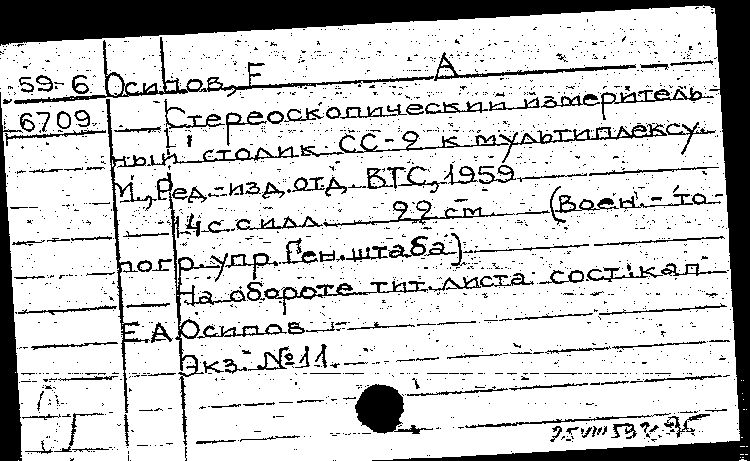 59-6 Осипов, Е A
6709 Стереоскопический измеритель-
ный столик СС-2 к мультиплексу.
М., Ред.-изд. отд. ВТС, 1959
14 с. с илл. 22 см. (Воен.-то-
погр. упр. Ген. штаба)
На обороте тит. листа: сост: кап
Е.А. Осипов
Экз. №11.
25 VIII 59 г.